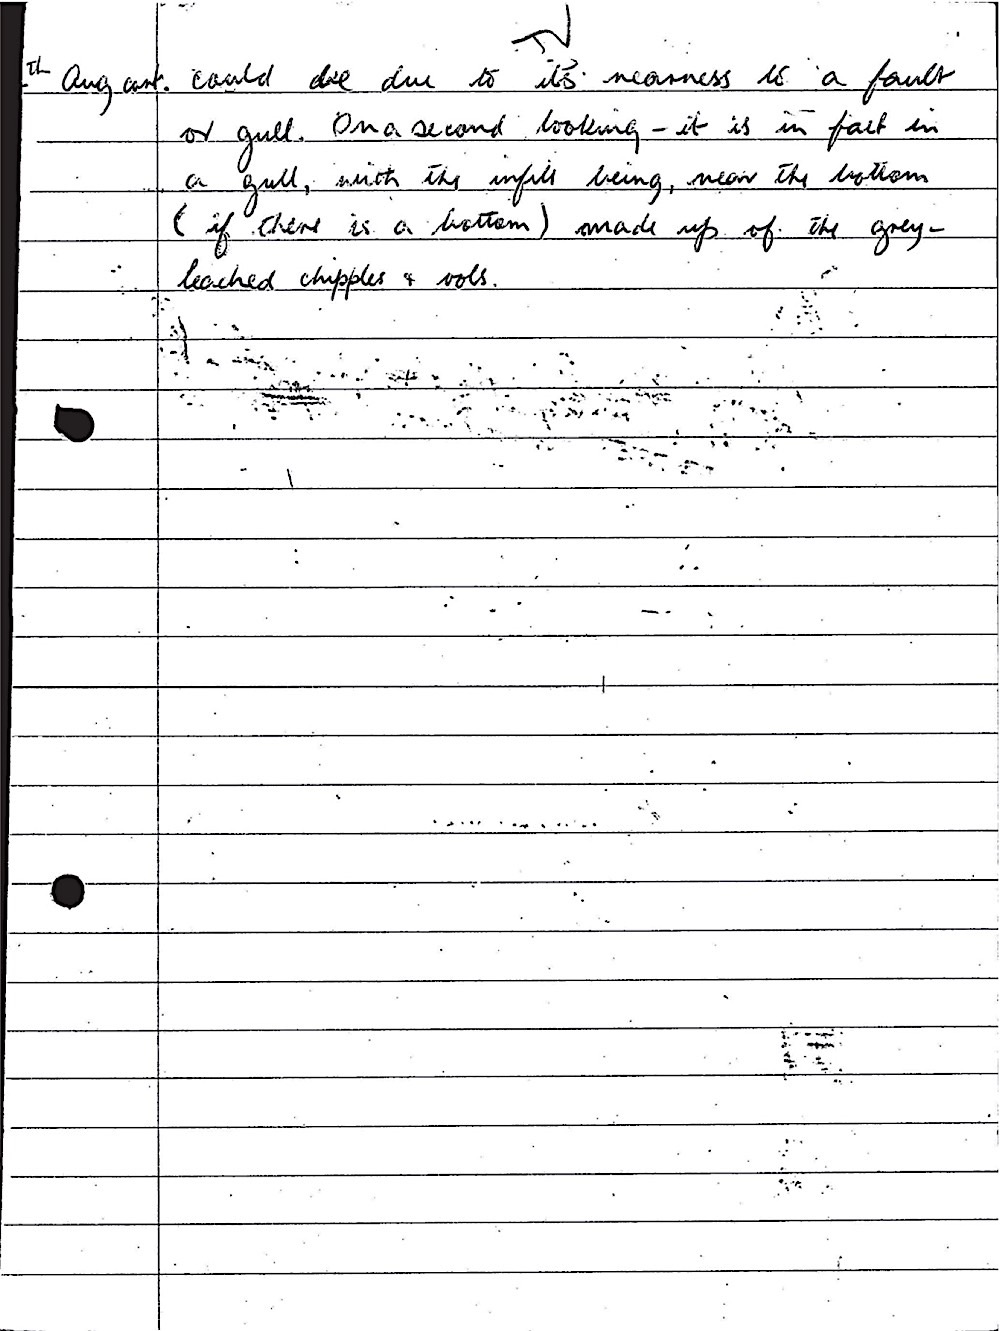 th Aug cont. could be due to it's nearness to a fault
or gull. On a second looking - it is in fact in
a gull, with the infill being, near the bottom
( if there is a bottom) made up of the grey-
leached chipples & vols.